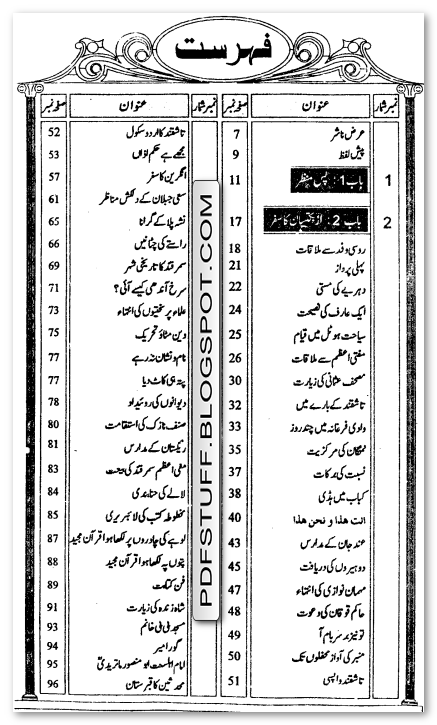 فہرست
نمبر شمار عنوان صفحہ نمبر
عرض ناشر 7
پیش لفظ 9
1 باب 1: پس منظر 11
2 باب 2: ازبکستان کا سفر 17
روسی وفد سے ملاقات 18
پہلی پرواز 21
دہریے کی مستی 22
ایک عارف کی نصیحت 24
سیاحت ہوٹل میں قیام 25
مفتی اعظم سے ملاقات 26
مصحف عثمانی کی زیارت 30
تاشقند کے بارے میں 32
وادی فرغانہ میں چند روز 33
نمنگان کی مرکزیت 35
نسبت کی برکات 37
کباب میں ہڈی 38
انت هذا و نحن هذا 40
عند جان کے مدارس 43
دو ہیروں کی دریافت 45
مہمان نوازی کی انتہاء 47
حاکم قوقان کی دعوت 48
تو نیز بر سر بام آ 49
منبر کی آواز محفلوں تک 50
تاشقند واپسی 51
نمبر شمار عنوان صفحہ نمبر
تاشقند کا اردو سکول 52
مجھے ہے حکم اذاں 53
انگرین کا سفر 57
سمی جیلان کے دلکش مناظر 61
نشہ پلا کے گرانا 65
راستے کی چٹانیں 66
سمرقند کا تاریخی شہر 69
سرخ آندھی کیسے آئی؟ 71
علماء پر سختیوں کی انتہاء 73
دین مٹاؤ تحریک 75
نام و نشان نہ رہے 77
پتہ ہی کاٹ دیا 77
دیوانوں کی روئیداد 78
صنف نازک کی استقامت 80
ریگستان کے مدارس 81
مفتی اعظم سمرقند کی بیعت 83
لالے کی حنا بندی 84
مخطوطہ کتب کی لائبریری 85
لوہے کی چادروں پر لکھا ہوا قرآن مجید 87
پتوں پہ لکھا ہوا قرآن مجید 88
فن کتابت 89
شاہ زندہ کی زیارت 91
مسجد بی بی خانم 93
گور امیر 94
امام اہلسنت ابو منصور ماتریدیؒ 95
محدثین کا قبرستان 96
PDFSTUFF.BLOGSPOT.COM